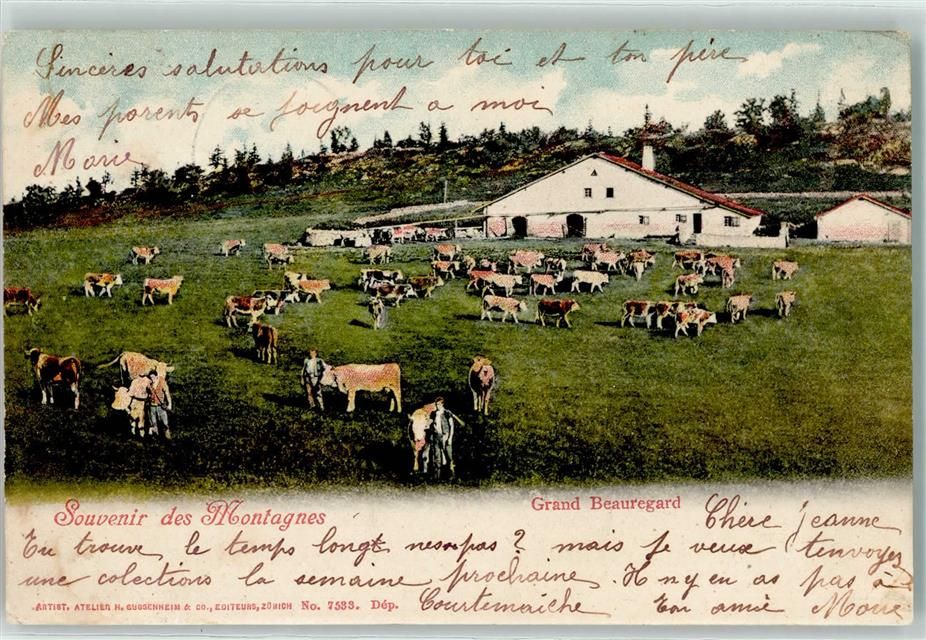 Sincères salutations pour toi et ton père
Mes parents se joignent a moi
Marie
Souvenir des Montagnes
Grand Beauregard
Chère Jeanne
Tu trouve le temps longt nes pas ? mais je veux t'envoyer
une colections la semaine prochaine. Il n y en as pas à
ARTIST. ATELIER H. GUGGENHEIM & CO., EDITEURS, ZÜRICH No. 7533. Dép.
Courtemaiche Ton amie Marie